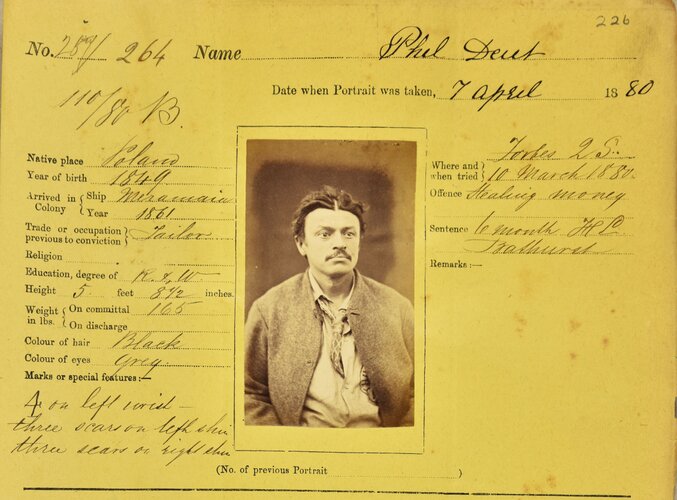 226
No. 257/264 Name Phil Dent
Date when Portrait was taken, 7 April 1880
110/80 B.
Native place Poland
Year of birth 1849
Arrived in Colony { Ship Miramair
Year 1861
Trade or occupation previous to conviction } Tailor
Religion
Education, degree of R & W
Height 5 feet 8½ inches.
Weight in lbs. { On committal 165
On discharge
Colour of hair Black
Colour of eyes Grey
Marks or special features:—
4 on left wrist –
three scars on left shin
three scars on right shin
Where and when tried } Forbes Q S.
10 March 1880
Offence Stealing money
Sentence 6 month H L
Bathurst
Remarks:—
(No. of previous Portrait )